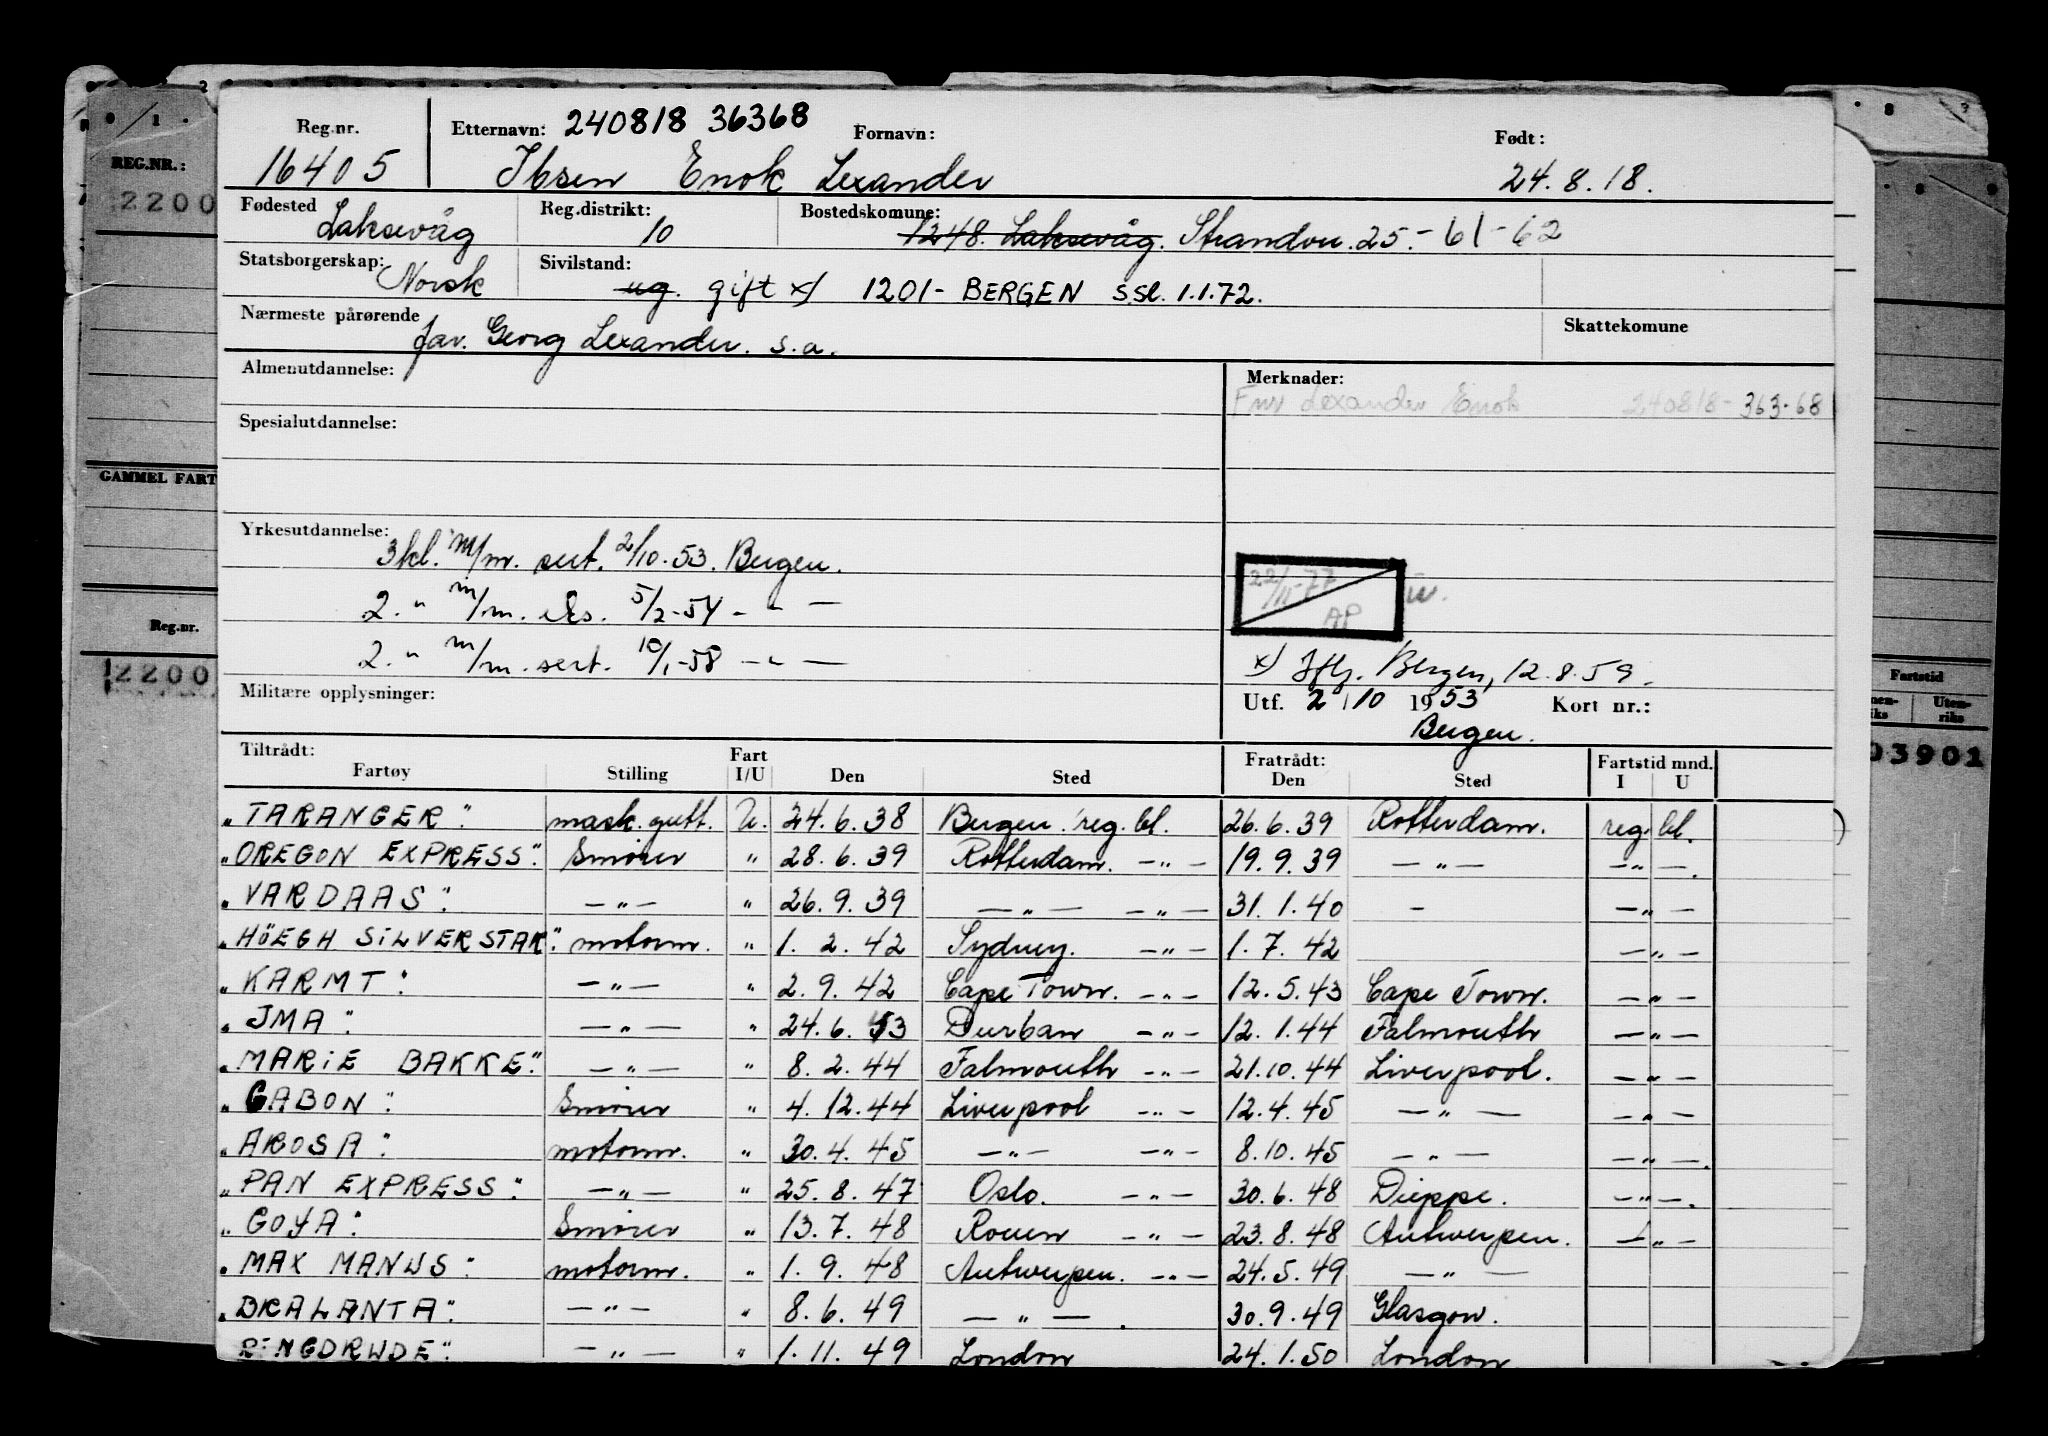 Reg.nr. Etternavn: 240818 36368 Fornavn: Født:
16405 Ibsen Enok Lexander 24.8.18.
Fødested Reg.distrikt: Bostedskomune:
Laksevåg 10 1248. Laksevåg. Strandvn. 25.- 61-62
Statsborgerskap: Sivilstand:
Norsk ug. gift x/ 1201- BERGEN s.sl. 1.1.72.
Nærmeste pårørende Skattekomune
far. Georg Lexander. s.a.
Almenutdannelse: Merknader:
Fnr Lexander Enok 240818- 363-68
Spesialutdannelse:
Yrkesutdannelse:
3 kl. m/m. sert. 2/10-53. Bergen.
2. " m/m. eks. 5/2-54 - " -
2. " m/m. sert. 10/1-58 - " -
22/11-77 AP
x/ Iflg. Bergen, 12.8.59.
Militære opplysninger: Utf. 2/10 1953 Kort nr.:
Bergen.
Tiltrådt: Fart Fratrådt: Fartstid mnd.
Fartøy Stilling I/U Den Sted Den Sted I U
"TARANGER". mask.gutt. U. 24.6.38 Bergen. reg. bl. 26.6.39 Rotterdam. reg. bl.
"OREGON EXPRESS". Smører " 28.6.39 Rotterdam. -"- 19.9.39 -"- -"-.
"VARDAAS". -"- " 26.9.39 -"- -"- 31.1.40 - -"-
"HÖEGH SILVERSTAR". motorm. " 1.2.42 Sydney. -"- 1.7.42 -"-
"KARMT". -"- " 2.9.42 Cape Town. -"- 12.5.43 Cape Town. -"-
"JMA". -"- " 24.6.43 Durban -"- 12.1.44 Falmouth -"-
"MARIE BAKKE". -"- " 8.2.44 Falmouth -"- 21.10.44 Liverpool. -"-
"GABON". Smører " 4.12.44 Liverpool -"- 12.4.45 -"- -"-
"AROSA". motorm. " 30.4.45 -"- -"- 8.10.45 -"- -"-.
"PAN EXPRESS". -"- " 25.8.47 Oslo. -"- 30.6.48 Dieppe. -"-.
"GOYA". Smører " 13.7.48 Rouen -"- 23.8.48 Antwerpen. -"-
"MAX MANUS". motorm. " 1.9.48 Antwerpen. -"- 24.5.49 -"-
"BRALANTA". -"- " 8.6.49 -"-. 30.9.49 Glasgow.
RINGDRUDE". -"- " 1.11.49 London 24.1.50 London
REG.NR.:
2200
GAMMEL FART
Reg.nr.
2200
Fartstid
Uten-
riks
03901